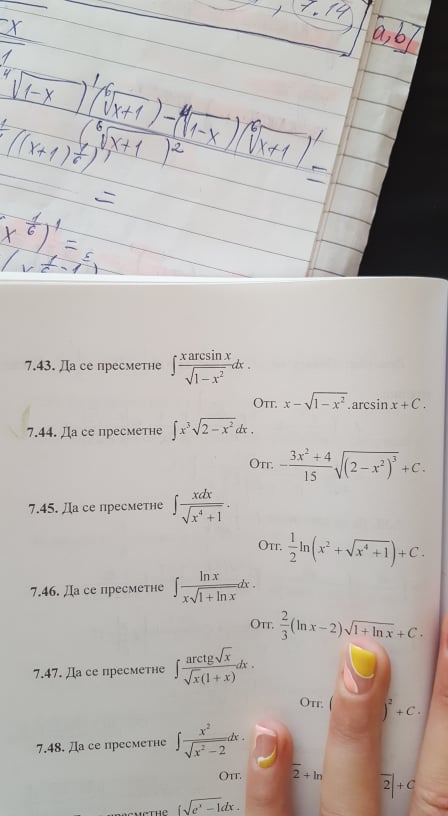 7.14
a, b
-x
1
⁴√(1-x))' (⁶√(x+1)) - (⁴√(1-x)) (⁶√(x+1))' =
(⁶√(x+1))²
((x+1)^(1/6))'
=
x^(1/6))' =
7.43. Да се пресметне ∫ x arcsin x / √(1 - x²) dx .
Отг. x - √(1 - x²) . arcsin x + C .
7.44. Да се пресметне ∫ x³ √(2 - x²) dx .
Отг. - (3x² + 4)/15 √((2 - x²)³) + C .
7.45. Да се пресметне ∫ xdx / √(x⁴ + 1) .
Отг. 1/2 ln(x² + √(x⁴ + 1)) + C .
7.46. Да се пресметне ∫ ln x / (x√(1 + ln x)) dx .
Отг. 2/3 (ln x - 2) √(1 + ln x) + C .
7.47. Да се пресметне ∫ arctg√x / (√x(1 + x)) dx .
Отг. ( )² + C .
7.48. Да се пресметне ∫ x² / √(x² - 2) dx .
Отг. 2 + ln 2| + C
пресметне ∫ √(eˣ - 1) dx .